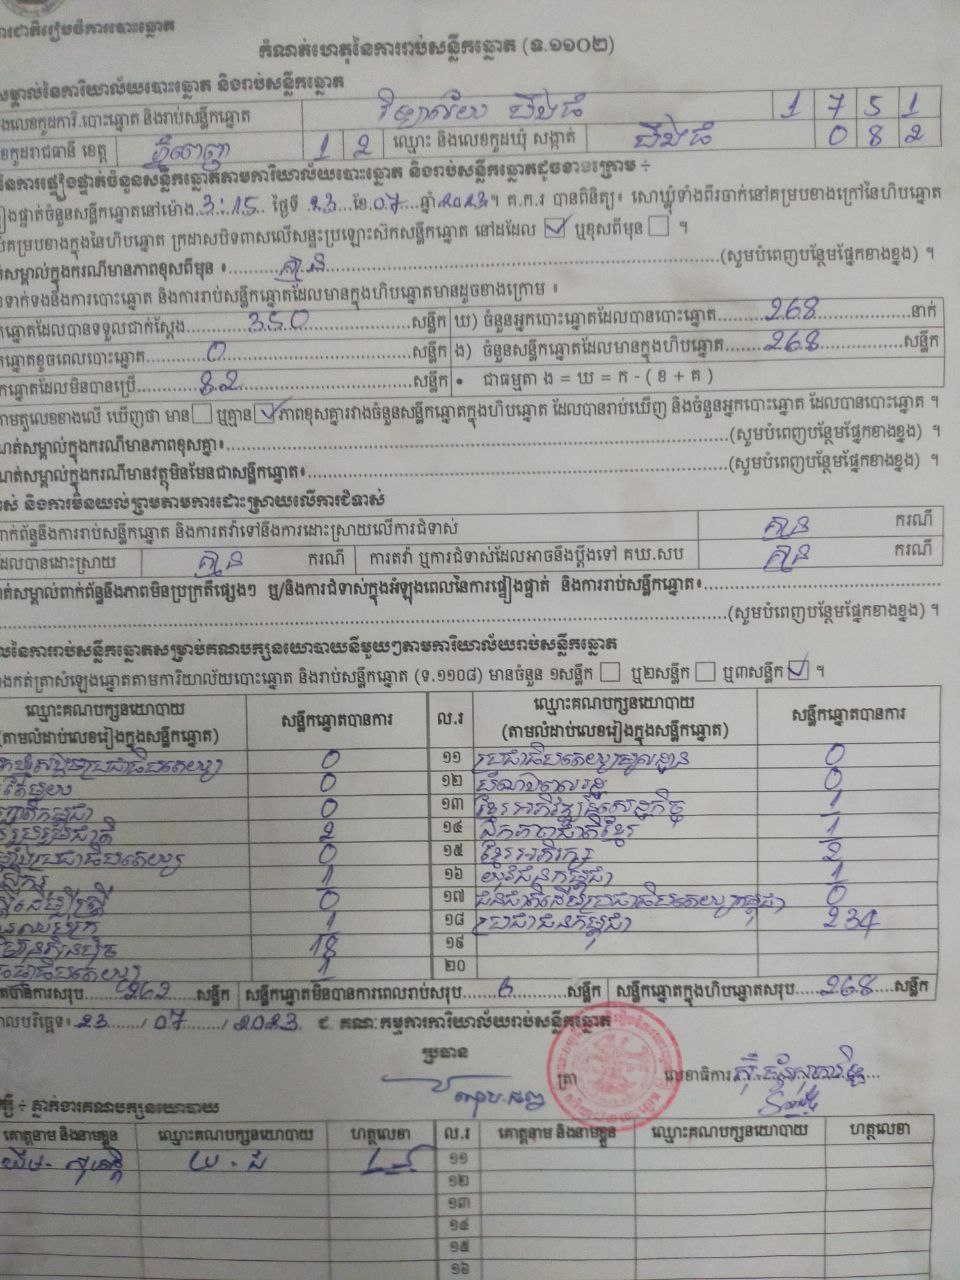 ារជាតិរៀបចំការបោះឆ្នោត
កំណត់ហេតុនៃការរាប់សន្លឹកឆ្នោត (ទ.១១០២)
សម្គាល់នៃការិយាល័យបោះឆ្នោត និងរាប់សន្លឹកឆ្នោត
ងលេខកូដការិ.បោះឆ្នោត និងរាប់សន្លឹកឆ្នោត វិទ្យាល័យ បឹងធំ 1 7 5 1
ខកូដរាជធានី ខេត្ត ភ្នំពេញ 1 2 ឈ្មោះ និងលេខកូដឃុំ សង្កាត់ បឹងធំ 0 8 2
នៃការផ្ទៀងផ្ទាត់ចំនួនសន្លឹកឆ្នោតតាមការិយាល័យបោះឆ្នោត និងរាប់សន្លឹកឆ្នោតដូចខាងក្រោម ÷
ៀងផ្ទាត់ចំនួនសន្លឹកឆ្នោតនៅម៉ោង 3:15 ថ្ងៃទី 23 ខែ 07 ឆ្នាំ 2023 ។ គ.ក.រ បានពិនិត្យ៖ សោឃ្លុំទាំងពីរចាក់នៅគម្របខាងក្រៅនៃហិបឆ្នោត
គម្របខាងក្នុងនៃហិបឆ្នោត ក្រដាសបិទពាសលើសន្ទះប្រឡោះស៊កសន្លឹកឆ្នោត នៅដដែល ☑ ឬខុសពីមុន ☐ ។
់សម្គាល់ក្នុងករណីមានភាពខុសពីមុន ៖ គ្មាន (សូមបំពេញបន្ថែមផ្នែកខាងខ្នង) ។
ទាក់ទងនឹងការបោះឆ្នោត និងការរាប់សន្លឹកឆ្នោតដែលមានក្នុងហិបឆ្នោតមានដូចខាងក្រោម ៖
កឆ្នោតដែលបានទទួលជាក់ស្តែង 350 សន្លឹក ឃ) ចំនួនអ្នកបោះឆ្នោតដែលបានបោះឆ្នោត 268 នាក់
កឆ្នោតខូចពេលបោះឆ្នោត 0 សន្លឹក ង) ចំនួនសន្លឹកឆ្នោតដែលមានក្នុងហិបឆ្នោត 268 សន្លឹក
កឆ្នោតដែលមិនបានប្រើ 82 សន្លឹក • ជាធម្មតា ង = ឃ = ក - ( ខ + គ )
តាមតួលេខខាងលើ ឃើញថា មាន ☐ ឬគ្មាន ☑ ភាពខុសគ្នារវាងចំនួនសន្លឹកឆ្នោតក្នុងហិបឆ្នោត ដែលបានរាប់ឃើញ និងចំនួនអ្នកបោះឆ្នោត ដែលបានបោះឆ្នោត ។
ណត់សម្គាល់ក្នុងករណីមានភាពខុសគ្នា៖ (សូមបំពេញបន្ថែមផ្នែកខាងខ្នង) ។
ណត់សម្គាល់ក្នុងករណីមានវត្ថុមិនមែនជាសន្លឹកឆ្នោត៖ (សូមបំពេញបន្ថែមផ្នែកខាងខ្នង) ។
ាស់ និងការមិនយល់ព្រមតាមការដោះស្រាយលើការជំទាស់
ពាក់ព័ន្ធនឹងការរាប់សន្លឹកឆ្នោត និងការតវ៉ាទៅនឹងការដោះស្រាយលើការជំទាស់ គ្មាន ករណី
ដែលបានដោះស្រាយ គ្មាន ករណី ការតវ៉ា ឬការជំទាស់ដែលអាចនឹងប្តឹងទៅ គឃ.សប គ្មាន ករណី
ត់សម្គាល់ពាក់ព័ន្ធនឹងភាពមិនប្រក្រតីផ្សេងៗ ឬ/និងការជំទាស់ក្នុងអំឡុងពេលនៃការផ្ទៀងផ្ទាត់ និងការរាប់សន្លឹកឆ្នោត៖
(សូមបំពេញបន្ថែមផ្នែកខាងខ្នង) ។
លនៃការរាប់សន្លឹកឆ្នោតសម្រាប់គណបក្សនយោបាយនីមួយៗតាមការិយាល័យរាប់សន្លឹកឆ្នោត
ងកត់ត្រាសំឡេងឆ្នោតតាមការិយាល័យបោះឆ្នោត និងរាប់សន្លឹកឆ្នោត (ទ.១១០៨) មានចំនួន ១សន្លឹក ☐ ឬ២សន្លឹក ☐ ឬ៣សន្លឹក ☑ ។
ឈ្មោះគណបក្សនយោបាយ សន្លឹកឆ្នោតបានការ ល.រ ឈ្មោះគណបក្សនយោបាយ សន្លឹកឆ្នោតបានការ
(តាមលំដាប់លេខរៀងក្នុងសន្លឹកឆ្នោត) (តាមលំដាប់លេខរៀងក្នុងសន្លឹកឆ្នោត)
0 ១១ ប្រជាធិបតេយ្យមូលដ្ឋាន 0
0 ១២ 0
0 ១៣ ខ្មែរអភិវឌ្ឍន៍សេដ្ឋកិច្ច 1
2 ១៤ ឯកភាពជាតិខ្មែរ 1
0 ១៥ ខ្មែរអភិរក្ស 2
1 ១៦ 1
0 ១៧ 0
1 ១៨ ប្រជាជនកម្ពុជា 234
18 ១៩
1 ២០
តបានការសរុប 262 សន្លឹក សន្លឹកឆ្នោតមិនបានការពេលរាប់សរុប 6 សន្លឹក សន្លឹកឆ្នោតក្នុងហិបឆ្នោតសរុប 268 សន្លឹក
ាលបរិច្ឆេទ៖ 23 / 07 / 2023 ៩. គណៈកម្មការការិយាល័យរាប់សន្លឹកឆ្នោត
ប្រធាន
ត្រា លេខាធិការ
្សី ÷ ភ្នាក់ងារគណបក្សនយោបាយ
គោត្តនាម និងនាមខ្លួន ឈ្មោះគណបក្សនយោបាយ ហត្ថលេខា ល.រ គោត្តនាម និងនាមខ្លួន ឈ្មោះគណបក្សនយោបាយ ហត្ថលេខា
១១
១២
១៣
១៤
១៥
១៦